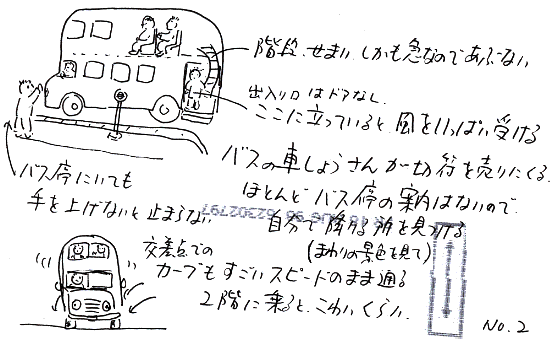 階段、せまい、しかも急なのであぶない
出入り口はドアなし
ここに立っていると、風をいっぱい受ける
バスの車しょうさんが切符を売りにくる。
ほとんどバス停の案内はないので、
自分で降りる所を見つける
(まわりの景色を見て)
バス停にいても
手を上げないと止まらない
交差点での
カーブもすごいスピードのまま通る
2階に乗ると、こわいくらい。
No.2